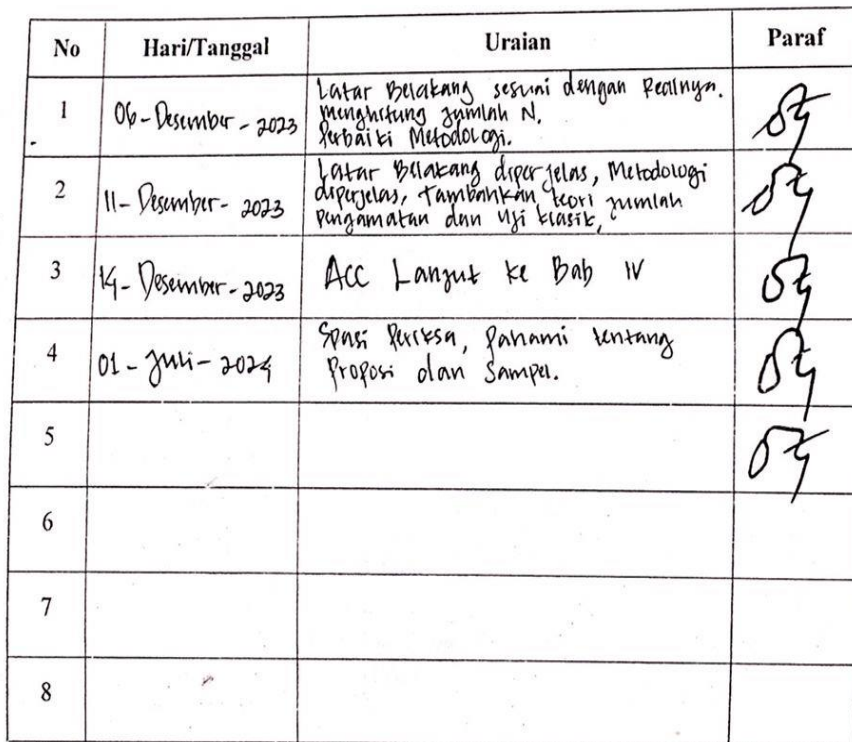 No Hari/Tanggal Uraian Paraf
1 06-Desember-2023 Latar Belakang sesuai dengan Realnya.
menghitung jumlah N.
Perbaiki Metodologi.
2 11-Desember-2023 Latar Belakang diperjelas, Metodologi
diperjelas, Tambahkan teori jumlah
pengamatan dan Uji klasik,
3 14-Desember-2023 Acc Lanjut ke Bab IV
4 01-Juli-2024 Spasi Periksa, Pahami tentang
Proposi dan Sampel.
5
6
7
8